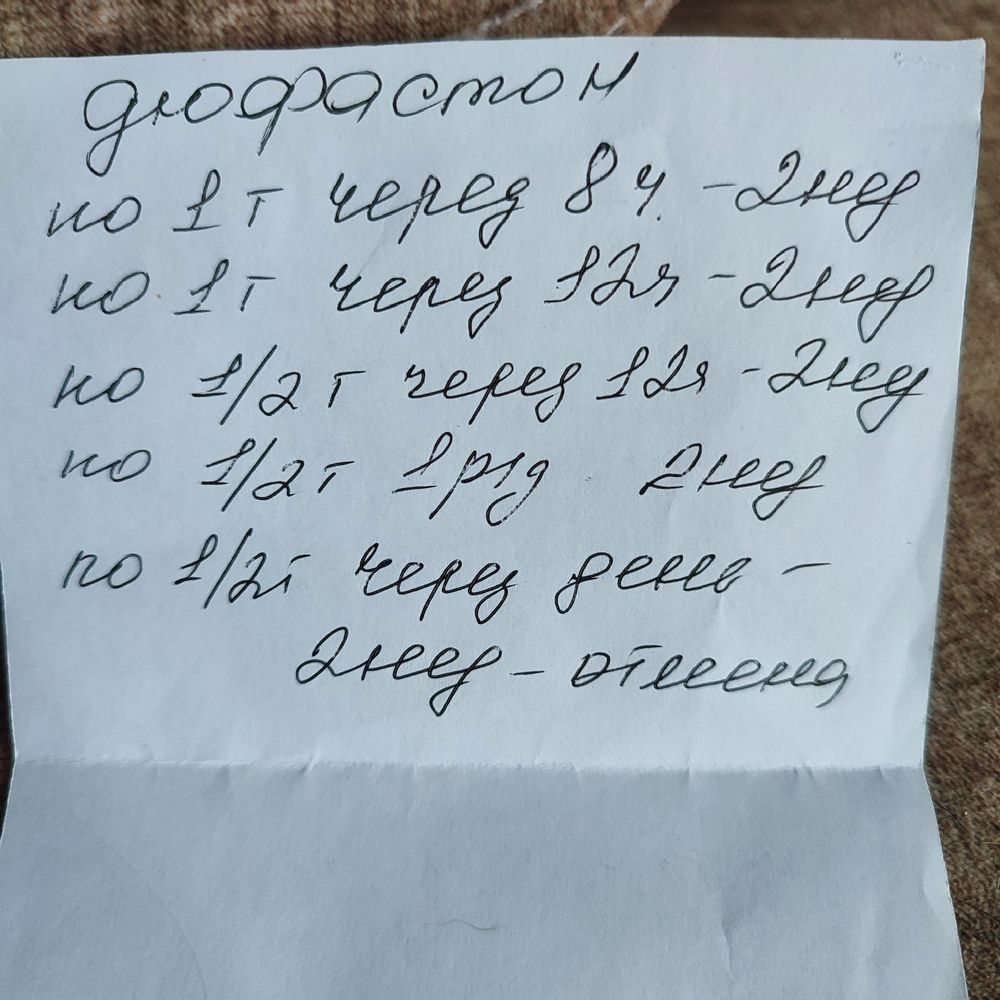 дюфастон
по 1т через 8ч. - 2нед
по 1т через 12ч - 2нед
по 1/2т через 12ч - 2нед
по 1/2т 1р/д 2нед
по 1/2т через день -
2нед - отмена